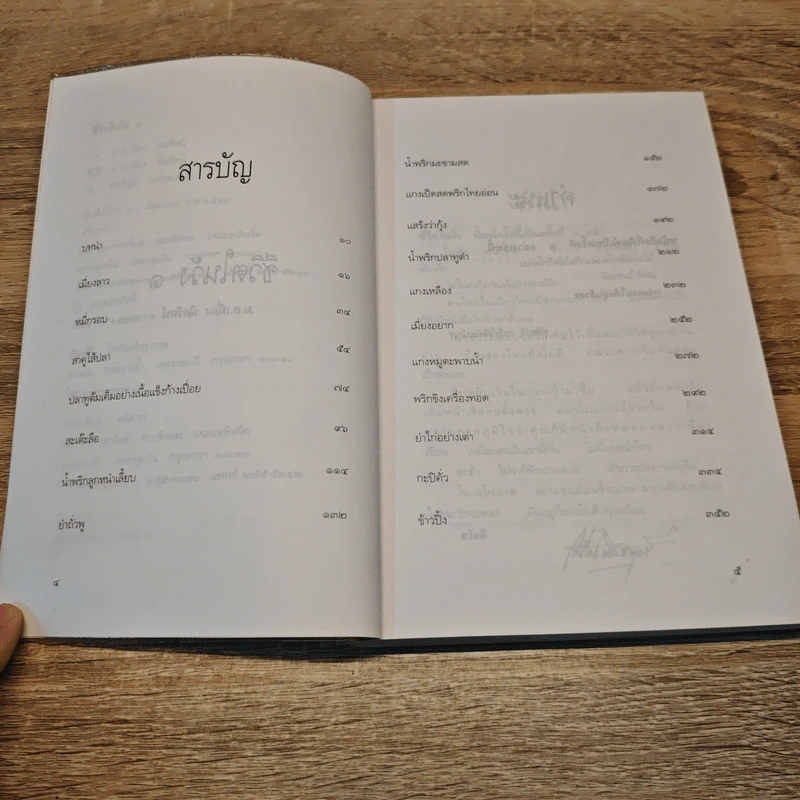 สารบัญ
บทนำ ๑๐
เมี่ยงลาว ๑๖
หมี่กรอบ ๓๔
สาคูไส้ปลา ๕๔
ปลาทูต้มเค็มอย่างเนื้อแข็งก้างเปื่อย ๗๔
สะเต๊ะลือ ๙๖
น้ำพริกลูกหนำเลี้ยบ ๑๑๔
ยำถั่วพู ๑๓๒
๔
น้ำพริกมะขามสด ๑๕๒
แกงเป็ดสดพริกไทยอ่อน ๑๗๒
แสร้งว่ากุ้ง ๑๙๒
น้ำพริกปลาทูตำ ๒๑๒
แกงเหลือง ๒๓๒
เมี่ยงอยาก ๒๕๒
แกงหมูตะพาบน้ำ ๒๗๒
พริกขิงเครื่องทอด ๒๙๒
ยำไก่อย่างเต่า ๓๑๔
กะปิคั่ว ๓๓๔
ข้าวปิ้ง ๓๕๒
๕